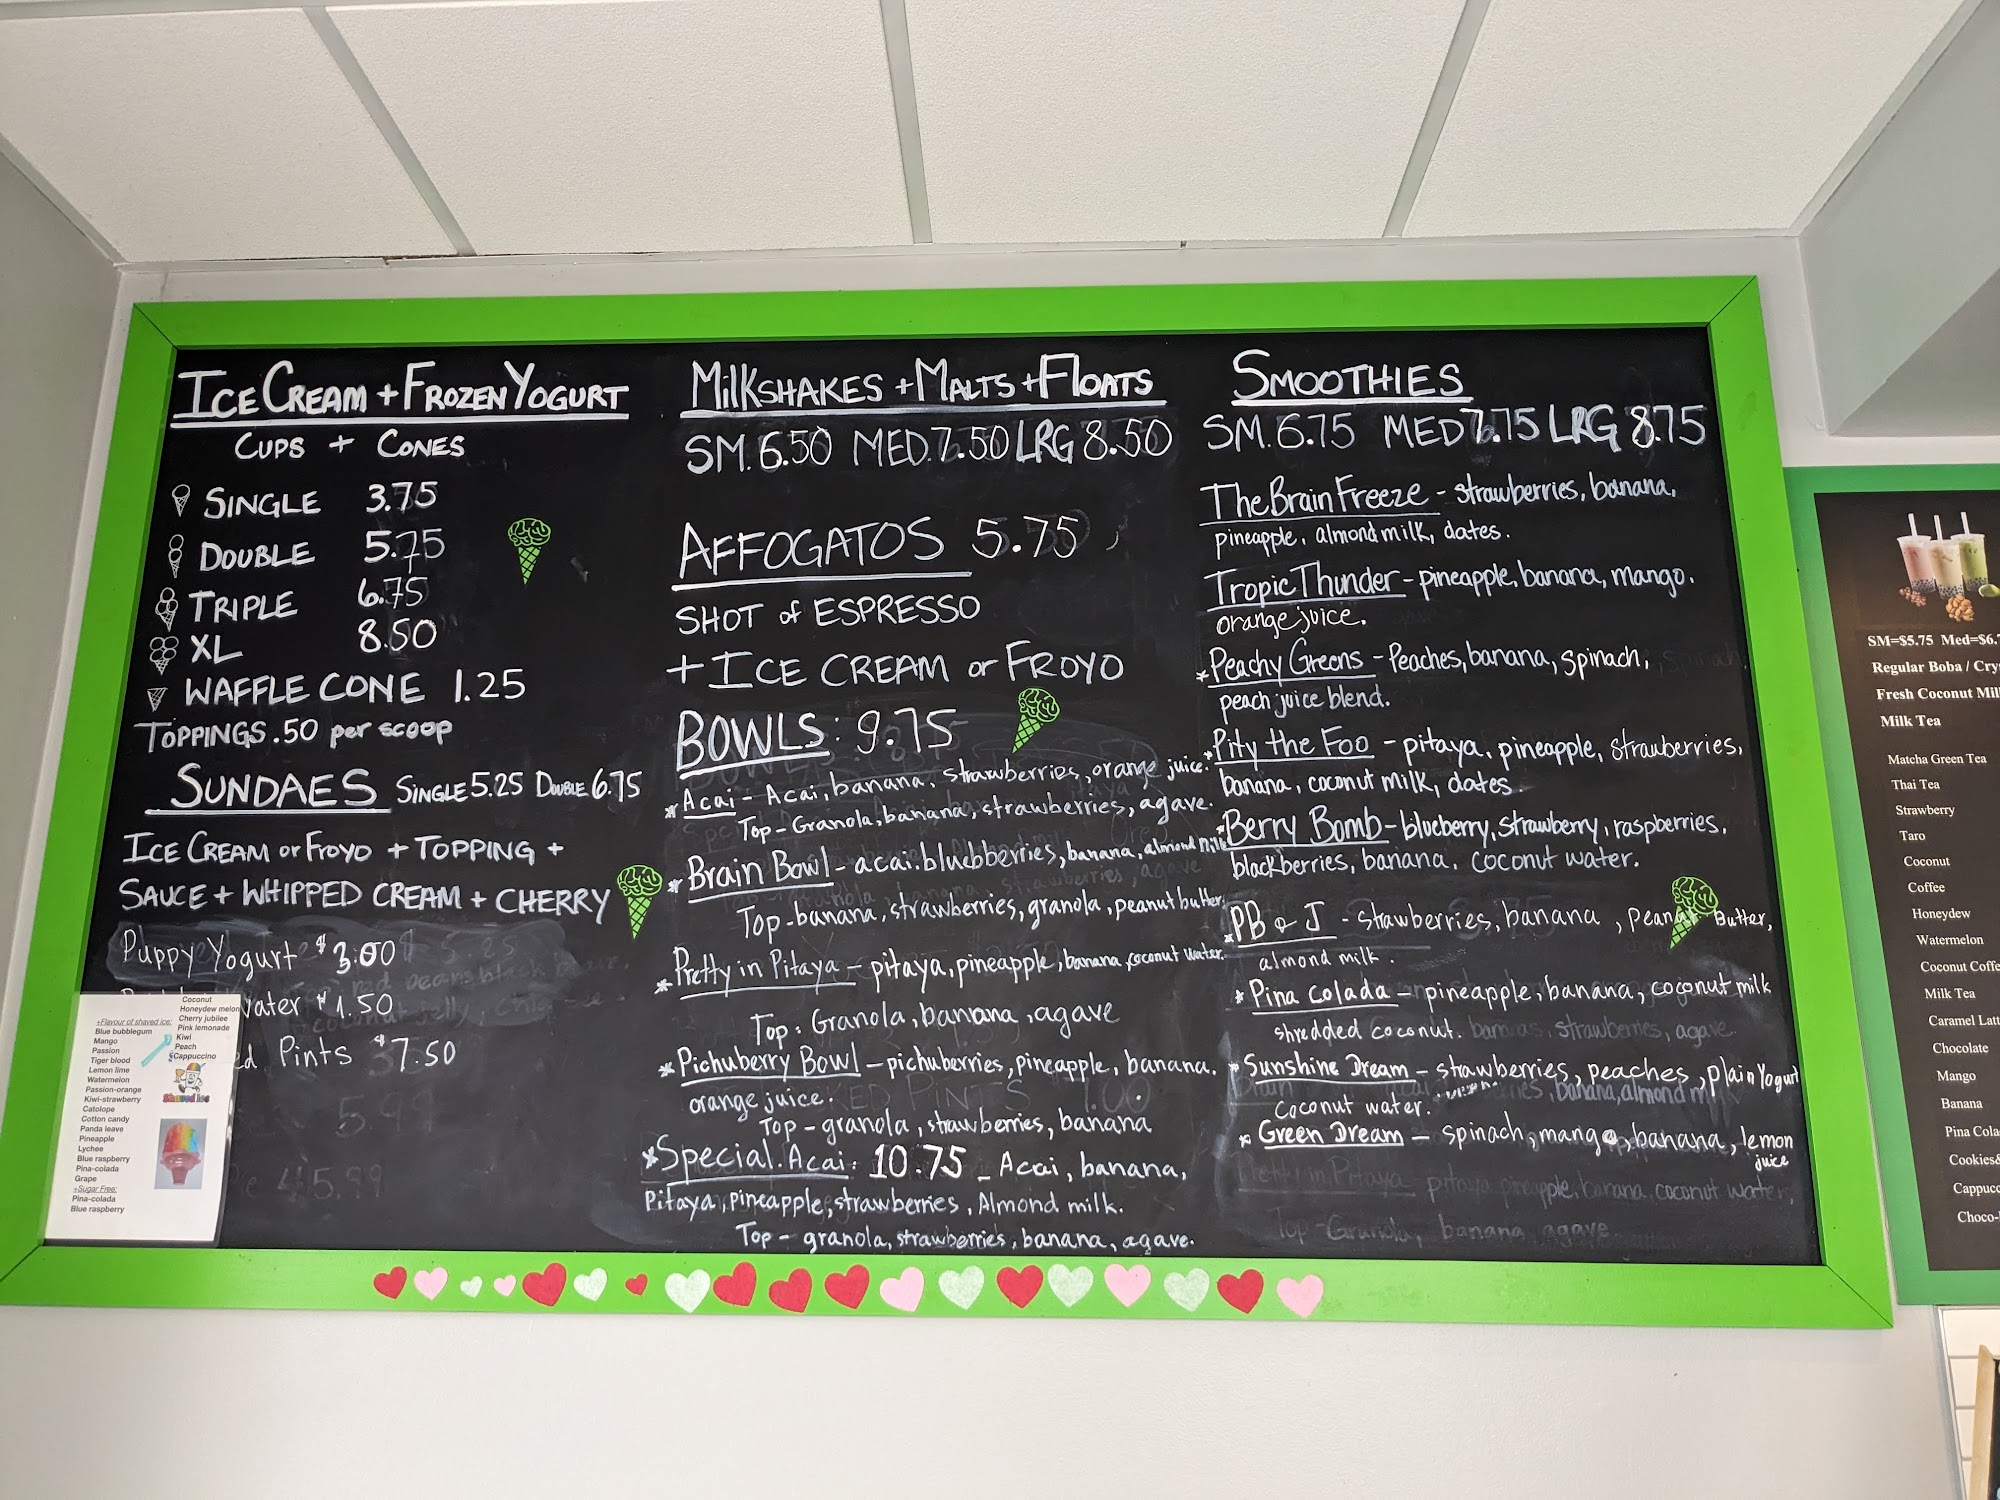 ICE CREAM + FROZEN YOGURT
CUPS + CONES
SINGLE 3.75
DOUBLE 5.75
TRIPLE 6.75
XL 8.50
WAFFLE CONE 1.25
TOPPINGS .50 per scoop
SUNDAES SINGLE 5.25 DOUBLE 6.75
ICE CREAM or FROYO + TOPPING +
SAUCE + WHIPPED CREAM + CHERRY
Puppy Yogurt $3.00
Water $1.50
Pints $7.50
Coconut
Honeydew melon
Cherry jubilee
Pink lemonade
Kiwi
Peach
Cappuccino
+Flavour of shaved ice:
Blue bubblegum
Mango
Passion
Tiger blood
Lemon lime
Watermelon
Passion-orange
Kiwi-strawberry
Catolope
Cotton candy
Panda leave
Pineapple
Lychee
Blue raspberry
Pina-colada
Grape
+Sugar Free:
Pina-colada
Blue raspberry
Shaved Ice
MILKSHAKES + MALTS + FLOATS
SM. 6.50 MED. 7.50 LRG 8.50
AFFOGATOS 5.75
SHOT of ESPRESSO
+ ICE CREAM or FROYO
BOWLS: 9.75
* Acai - Acai, banana, strawberries, orange juice.
Top - Granola, banana, strawberries, agave.
* Brain Bowl - acai. bluebberries, banana, almond milk
Top - banana, strawberries, granola, peanut butter.
* Pretty in Pitaya - pitaya, pineapple, banana, coconut water.
Top: Granola, banana, agave
* Pichuberry Bowl - pichuberries, pineapple, banana.
orange juice.
Top - granola, strawberries, banana
* Special. Acai: 10.75 - Acai, banana,
Pitaya, pineapple, strawberries, Almond milk.
Top - granola, strawberries, banana, agave.
SMOOTHIES
SM. 6.75 MED 7.75 LRG 8.75
The Brain Freeze - strawberries, banana,
pineapple, almond milk, dates.
Tropic Thunder - pineapple, banana, mango.
orange juice.
* Peachy Greens - Peaches, banana, spinach,
peach juice blend.
* Pity the Foo - pitaya, pineapple, strawberries,
banana, coconut milk, dates.
* Berry Bomb - blueberry, strawberry, raspberries,
blackberries, banana. coconut water.
* PB & J - strawberries, banana, peanut Butter,
almond milk.
* Pina Colada - pineapple, banana, coconut milk
shredded coconut.
* Sunshine Dream - strawberries, peaches, plain Yogurt
coconut water.
* Green Dream - spinach, mango, banana, lemon
juice
SM=$5.75 Med=$6.
Regular Boba / Cry
Fresh Coconut Mil
Milk Tea
Matcha Green Tea
Thai Tea
Strawberry
Taro
Coconut
Coffee
Honeydew
Watermelon
Coconut Coffe
Milk Tea
Caramel Latt
Chocolate
Mango
Banana
Pina Cola
Cookies&
Cappucc
Choco-